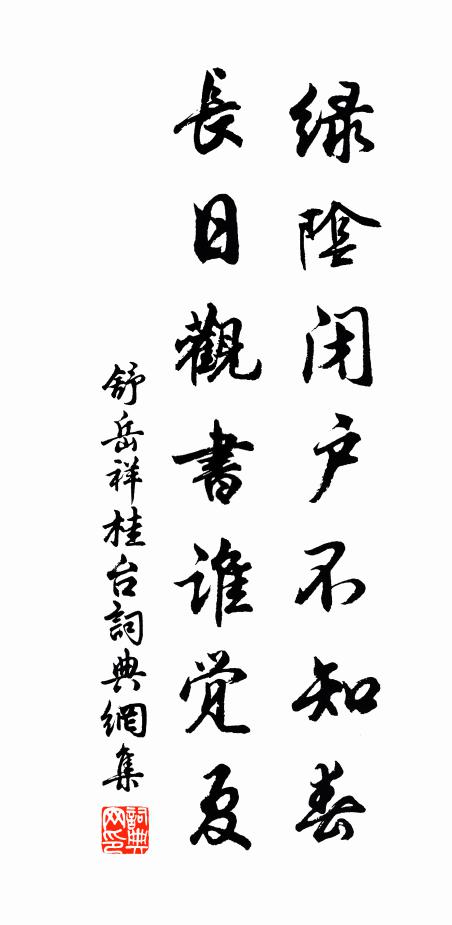 綠陰閉戶不知春
長日觀書誰覺夏
舒岳祥桂台詞典網集
詞典网印